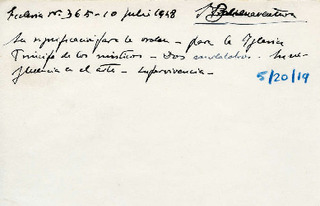 Ecclesia Nº 365 - 10 julio 1948
S. Buenaventura
Su significación para la orden - para la Iglesia
Príncipe de los místicos - Dos modalidades. Su in-
fluencia en el arte - supervivencia -
5/20/19